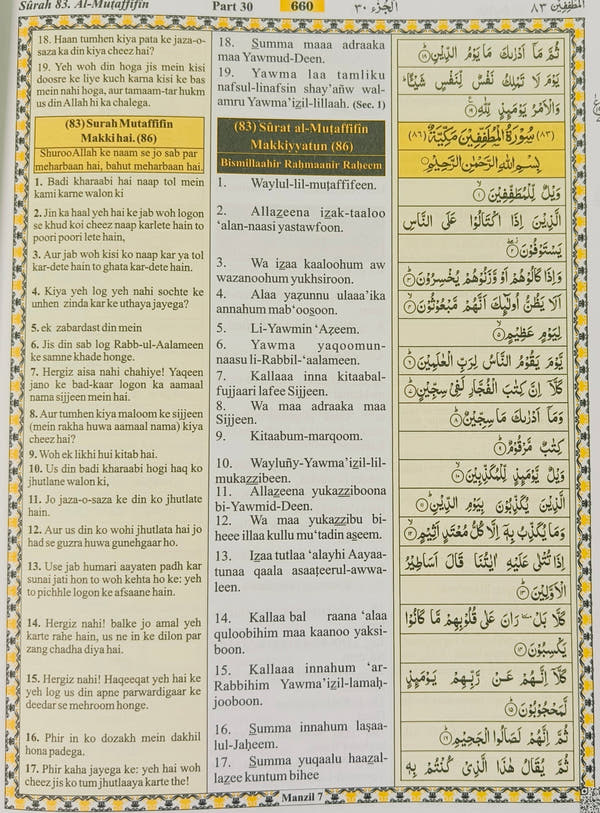 Sûrah 83. Al-Muṭaffifîn
Part 30
660
الْجُزْء ٣٠
الْمُطَفِّفِيْن ٨٣
18. Haan tumhen kiya pata ke jaza-o-
saza ka din kiya cheez hai?
19. Yeh woh din hoga jis mein kisi
doosre ke liye kuch karna kisi ke bas
mein nahi hoga, aur tamaam-tar hukm
us din Allah hi ka chalega.
(83) Surah Mutaffifin
Makki hai. (86)
Shuroo Allah ke naam se jo sab par
meharbaan hai, bahut meharbaan hai.
1. Badi kharaabi hai naap tol mein
kami karne walon ki
2. Jin ka haal yeh hai ke jab woh logon
se khud koi cheez naap karlete hain to
poori poori lete hain,
3. Aur jab woh kisi ko naap kar ya tol
kar-dete hain to ghata kar-dete hain.
4. Kiya yeh log yeh nahi sochte ke
unhen zinda kar ke uthaya jayega?
5. ek zabardast din mein
6. Jis din sab log Rabb-ul-Aalameen
ke samne khade honge.
7. Hergiz aisa nahi chahiye! Yaqeen
jano ke bad-kaar logon ka aamaal
nama sijjeen mein hai.
8. Aur tumhen kiya maloom ke sijjeen
(mein rakha huwa aamaal nama) kiya
cheez hai?
9. Woh ek likhi hui kitab hai.
10. Us din badi kharaabi hogi haq ko
jhutlane walon ki,
11. Jo jaza-o-saza ke din ko jhutlate
hain.
12. Aur us din ko wohi jhutlata hai jo
had se guzra huwa gunehgaar ho.
13. Use jab humari aayaten padh kar
sunai jati hon to woh kehta ho ke: yeh
to pichhle logon ke afsaane hain.
14. Hergiz nahi! balke jo amal yeh
karte rahe hain, us ne in ke dilon par
zang chadha diya hai.
15. Hergiz nahi! Haqeeqat yeh hai ke
yeh log us din apne parwardigaar ke
deedar se mehroom honge.
16. Phir in ko dozakh mein dakhil
hona padega.
17. Phir kaha jayega ke: yeh hai woh
cheez jis ko tum jhutlaaya karte the!
18. Summa maaa adraaka
maa Yawmud-Deen.
19. Yawma laa tamliku
nafsul-linafsin shay'añw wal-
amru Yawma'iẕil-lillaah. (Sec. 1)
(83) Sûrat al-Muṭaffifîn
Makkiyyatun (86)
Bismillaahir Raḥmaanir Raḥeem
1. Waylul-lil-muṭaffifeen.
2. Allaẕeena iẕak-taaloo
'alan-naasi yastawfoon.
3. Wa iẕaa kaaloohum aw
wazanoohum yukhsiroon.
4. Alaa yaẓunnu ulaaa'ika
annahum mab'oosoon.
5. Li-Yawmin 'Aẓeem.
6. Yawma yaqoomun-
naasu li-Rabbil-'aalameen.
7. Kallaaa inna kitaabal-
fujjaari lafee Sijjeen.
8. Wa maa adraaka maa
Sijjeen.
9. Kitaabum-marqoom.
10. Wayluñy-Yawma'iẕil-lil-
mukaẕẕibeen.
11. Allaẕeena yukaẕẕiboona
bi-Yawmid-Deen.
12. Wa maa yukaẕẕibu bi-
heee illaa kullu mu'tadin aseem.
13. Iẕaa tutlaa 'alayhi Aayaa-
tunaa qaala asaaṭeerul-awwa-
leen.
14. Kallaa bal raana 'alaa
quloobihim maa kaanoo yaksi-
boon.
15. Kallaaa innahum 'ar-
Rabbihim Yawma'iẕil-lamaḥ-
jooboon.
16. Summa innahum laṣaa-
lul-Jaḥeem.
17. Summa yuqaalu haaẕal-
laẕee kuntum bihee
ثُمَّ مَاۤ اَدْرٰىكَ مَا يَوْمُ الدِّيْنِ ﴿١٨﴾
يَوْمَ لَا تَمْلِكُ نَفْسٌ لِّنَفْسٍ شَيْـًٔا ؕ
وَالْاَمْرُ يَوْمَئِذٍ لِّلّٰهِ ﴿١٩﴾
(٨٣) سُوْرَةُ الْمُطَفِّفِيْنَ مَكِّيَّةٌ (٨٦)
بِسْمِ اللّٰهِ الرَّحْمٰنِ الرَّحِيْمِ
وَيْلٌ لِّلْمُطَفِّفِيْنَ ﴿١﴾
الَّذِيْنَ اِذَا اكْتَالُوْا عَلَى النَّاسِ
يَسْتَوْفُوْنَ ﴿٢﴾
وَاِذَا كَالُوْهُمْ اَوْ وَّزَنُوْهُمْ يُخْسِرُوْنَ ﴿٣﴾
اَلَا يَظُنُّ اُولٰٓئِكَ اَنَّهُمْ مَّبْعُوْثُوْنَ ﴿٤﴾
لِيَوْمٍ عَظِيْمٍ ﴿٥﴾
يَّوْمَ يَقُوْمُ النَّاسُ لِرَبِّ الْعٰلَمِيْنَ ﴿٦﴾
كَلَّاۤ اِنَّ كِتٰبَ الْفُجَّارِ لَفِيْ سِجِّيْنٍ ﴿٧﴾
وَمَاۤ اَدْرٰىكَ مَا سِجِّيْنٌ ﴿٨﴾
كِتٰبٌ مَّرْقُوْمٌ ﴿٩﴾
وَيْلٌ يَّوْمَئِذٍ لِّلْمُكَذِّبِيْنَ ﴿١٠﴾
الَّذِيْنَ يُكَذِّبُوْنَ بِيَوْمِ الدِّيْنِ ﴿١١﴾
وَمَا يُكَذِّبُ بِهٖۤ اِلَّا كُلُّ مُعْتَدٍ اَثِيْمٍ ﴿١٢﴾
اِذَا تُتْلٰى عَلَيْهِ اٰيٰتُنَا قَالَ اَسَاطِيْرُ
الْاَوَّلِيْنَ ﴿١٣﴾
كَلَّا بَلْ رَانَ عَلٰى قُلُوْبِهِمْ مَّا كَانُوْا
يَكْسِبُوْنَ ﴿١٤﴾
كَلَّاۤ اِنَّهُمْ عَنْ رَّبِّهِمْ يَوْمَئِذٍ
لَّمَحْجُوْبُوْنَ ﴿١٥﴾
ثُمَّ اِنَّهُمْ لَصَالُوا الْجَحِيْمِ ﴿١٦﴾
ثُمَّ يُقَالُ هٰذَا الَّذِيْ كُنْتُمْ بِهٖ
Manzil 7